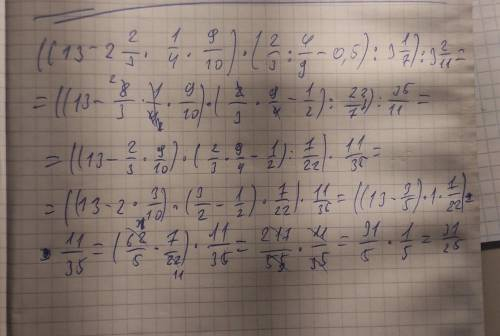 ((13 - 2 2/3 · 1/4 · 9/10) · (2/3 : 4/9 - 0,5) : 3 1/7) : 3 2/11 =
= ((13 - 8/3 · 1/4 · 9/10) · (2/3 · 9/4 - 1/2) : 22/7) : 35/11 =
= ((13 - 2/3 · 9/10) · (2/3 · 9/4 - 1/2) : 7/22) · 11/35 =
= ((13 - 2 · 3/10) · (3/2 - 1/2) · 7/22) · 11/35 = ((13 - 3/5) · 1 · 7/22) ·
· 11/35 = (62/5 · 7/22) · 11/35 = 217/55 · 11/35 = 31/5 · 1/5 = 31/25